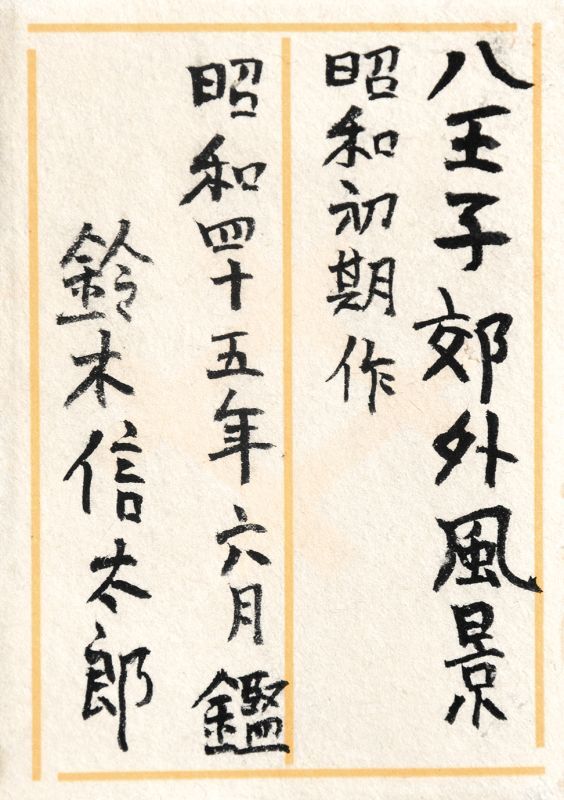 八王子郊外風景
昭和初期作
昭和四十五年六月鑑
鈴木信太郎